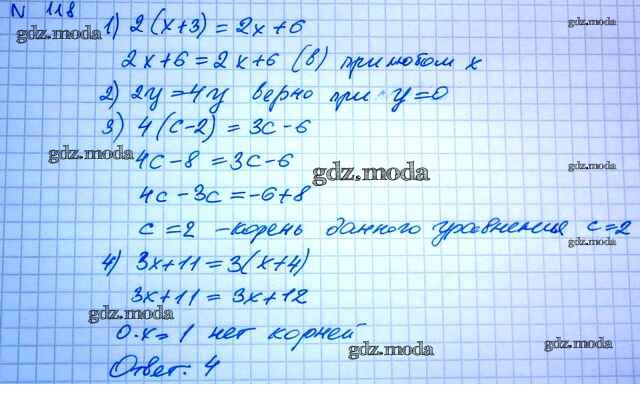 N 118
1) 2(x+3) = 2x+6
2x+6 = 2x+6 (в) при любом x
2) 2y = 4y верно при y=0
3) 4(c-2) = 3c-6
4c-8 = 3c-6
4c-3c = -6+8
c=2 -корень данного уравнения c=2
4) 3x+11 = 3(x+4)
3x+11 = 3x+12
0·x=1 нет корней
Ответ: 4
gdz.moda
gdz.moda
gdz.moda
gdz.moda
gdz.moda
gdz.moda
gdz.moda
gdz.moda
gdz.moda
gdz.moda